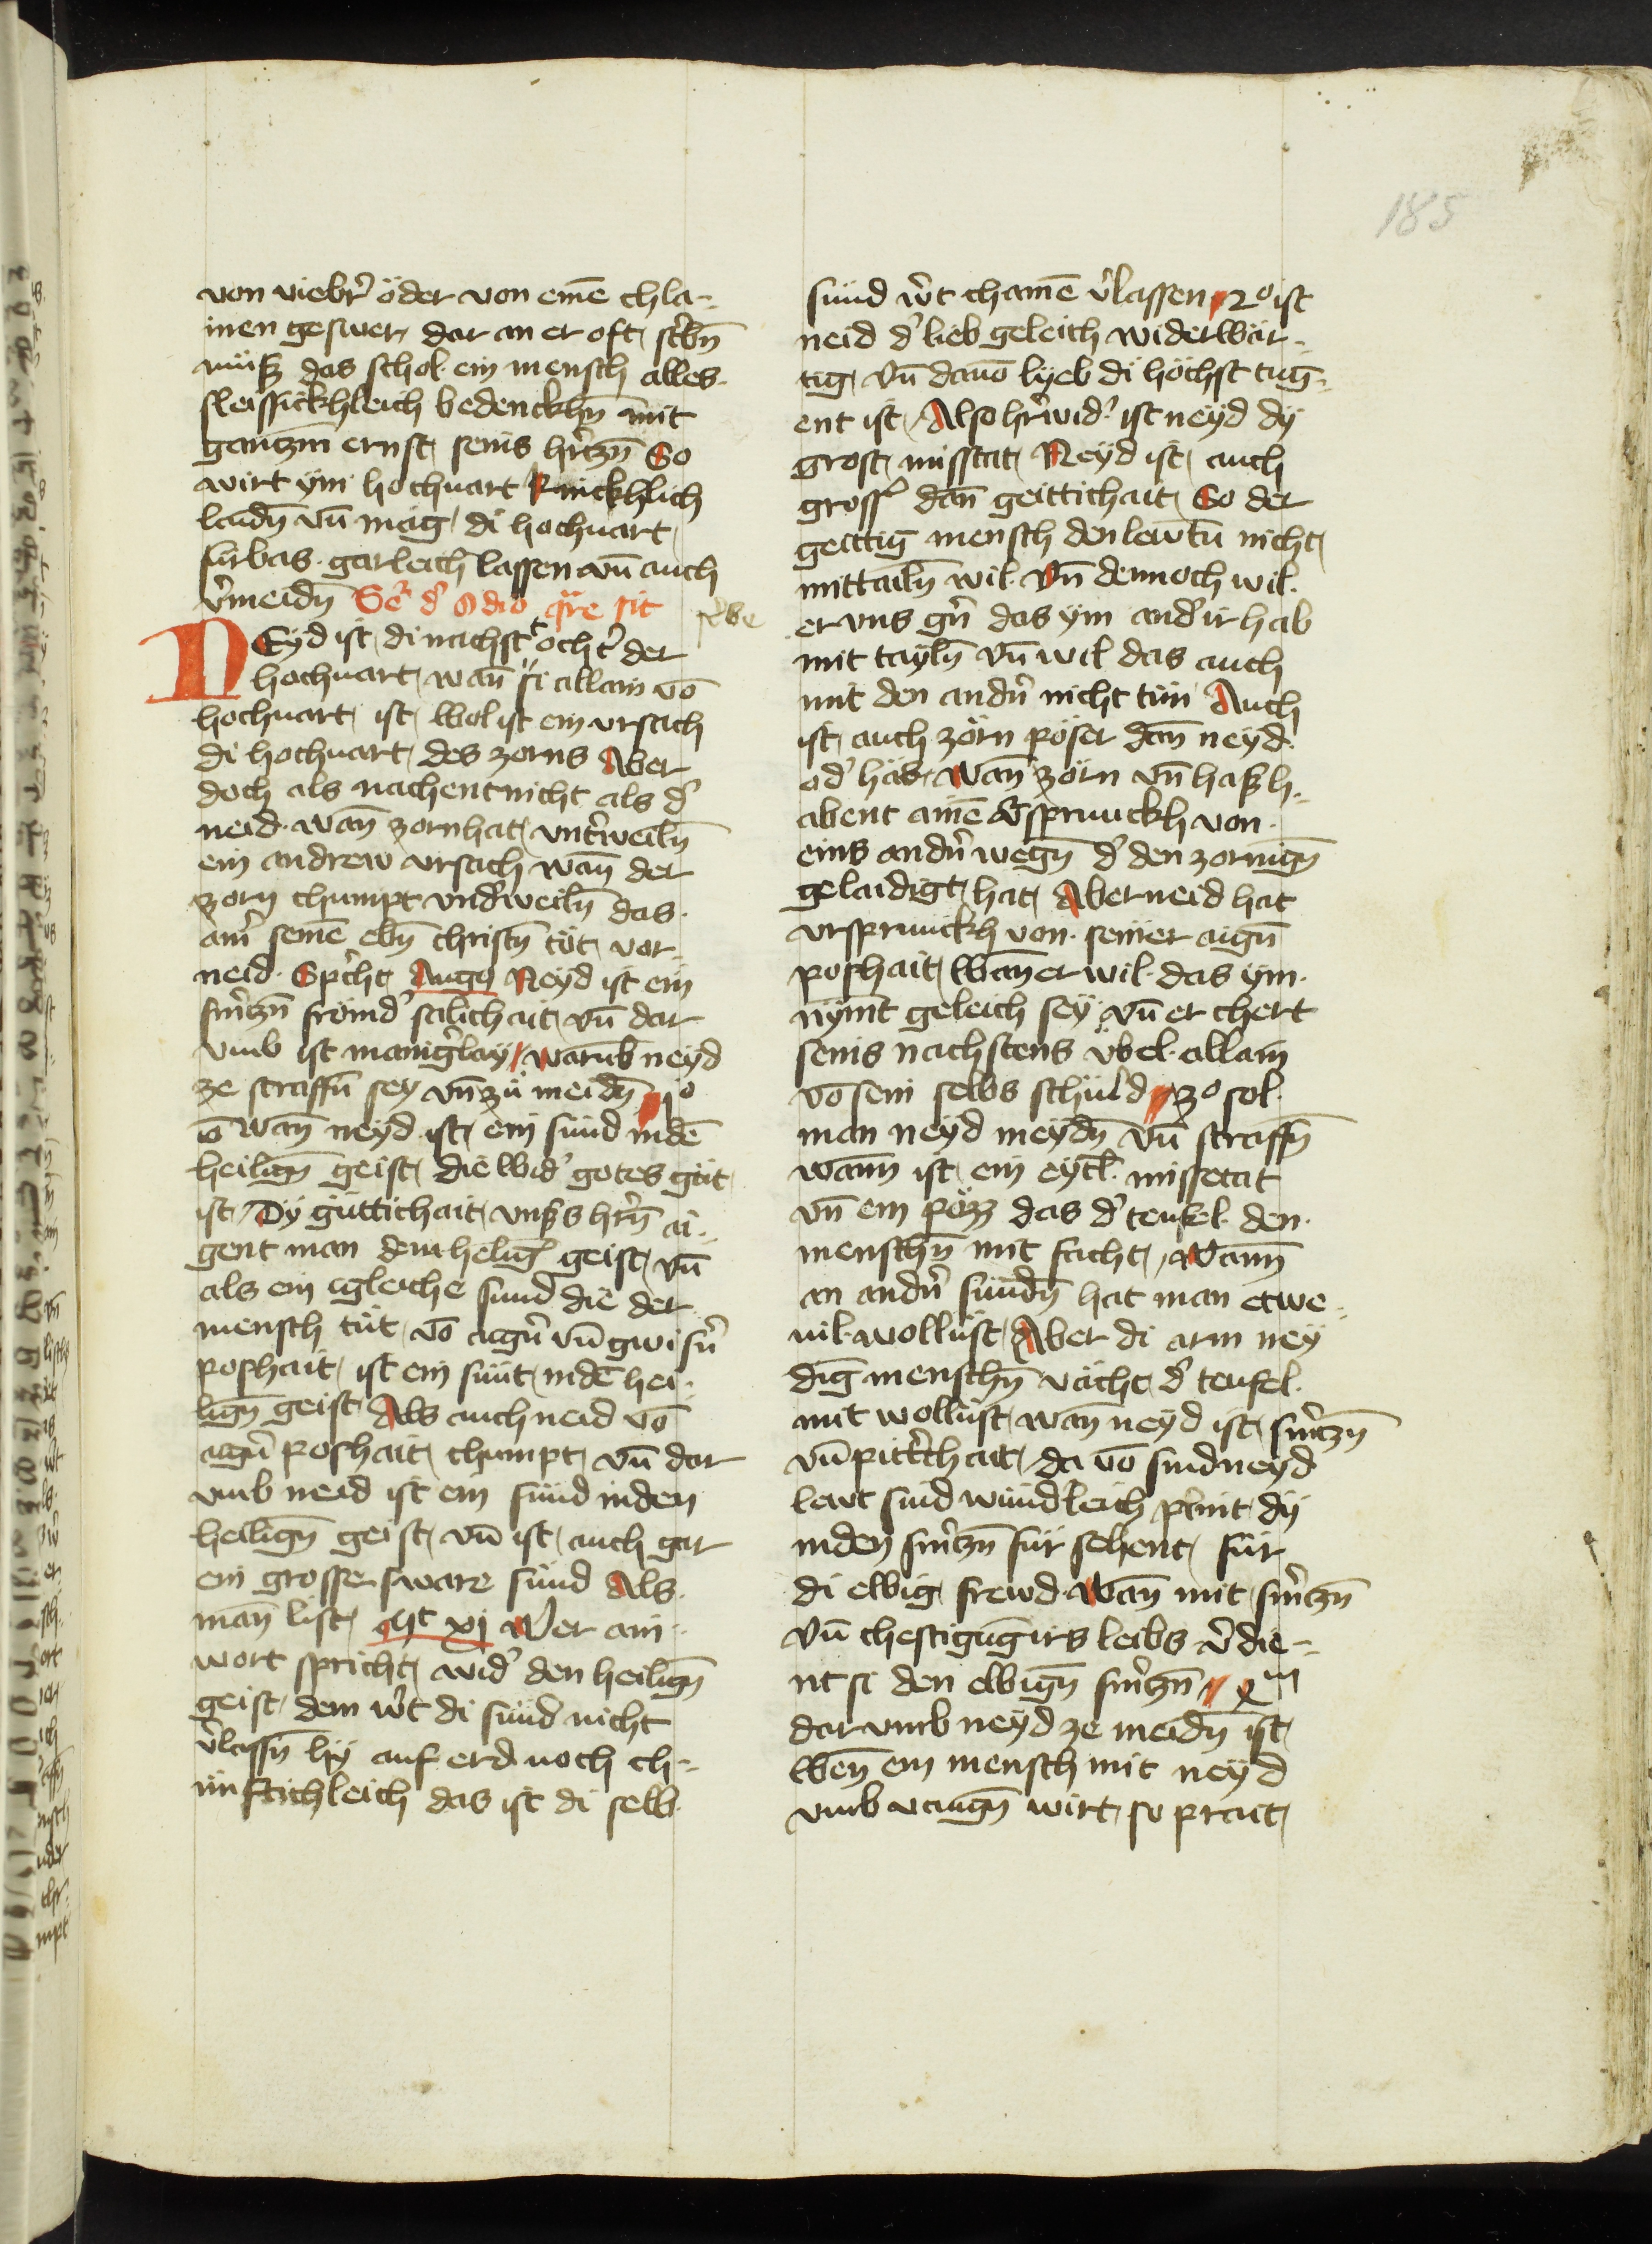 185
von viebr̉ öder von eme᷑ chla⸗
inen geswer, dar an er oft, st̉bn̄
müsz das schol ein mensch alles.
fleissickhleich bedenckhn̄ mit
gantzm ernst, seins hr̉tzn̄ So
wirt ÿm hochuart
laidn̄ vn̄ mag, di hochuart,
fürbas. garleich lassen vn̄ auch
v̉meidn̄ Se᷑ d̉ Odio qr̄e sit
NEÿd ist, di nachst tocht̉ der
hochuart, wan̄ si allain vō
hochuart, ist, wol ist ein vrsach
di hochuart, des zorns Aber
doch als nachent nicht als d̉
neid. wan̄ zorn hat, vnt̉weiln̄
ein andrew vrsach wan̄ der
zorn chumpt vnd̉weiln̄ das.
am̉ seine᷑ ebn̄ christn̄ tüt, vor⸗
neid. Sp̉cht, Augꝰ Neÿd ist ein
sm̉tzn̄ frömd̉ salichait, vn̄ dar
vmb ist manig̉laÿ, warūb neÿd
ze straffn̄ seÿ vn̄ zü meidn̄ jº
wan̄ neÿd ist, ein sünd in de᷑
heilign̄ geist, die wid̉ gotes güt,
ist, Dÿ güttichait, vns̉s hr̉n̄ ai⸗
gent man dem heilig̉ geist, vn̄
als ein igleiche sund die der
mensch tüt, vō aign̉ vn̄ gwisn̉
poshait, ist ein sünt, in de᷑ hei⸗
lign̄ geist, Als auch neid vō
aign̉ poshait, chumpt, vn̄ dar
vmb neid ist ein sünd in den
heilign̄ geist, vn̄ ist, auch gar
ein grosse sware sünd Als.
man̄ list, Mt xij Wer ain⸗
wort spricht, wid̉ den heilign̄
geist, dem w̉t di sünd nicht
v̉lassn̄ hÿ auf erd. noch ch⸗
ünftichleich das ist di selb.
sünd w̉t chaine᷑ v̉lassen, 2º ist
neid d̉ lieb geleich widerwär⸗
tig, vn̄ dauō lÿeb di höchst tug⸗
ent ist, Also hr̉wid̉ ist neÿd dÿ
grost, misstat, Neÿd ist, auch
gross̉ dan̄ geittichait, So der
geittig mensch den lewtn̄ nicht,
mittailn̄ wil. Vn̄ dennoch wil.
er vns gn̉ das ÿm and̉ ir hab
mit taÿln̄ vn̄ wil das auch
mit den andn̉ nicht tün Auch
ist, auch zörn pöser dan̄ neÿd.
od̉ häs, wan̄ zörn vn̄ hasz h⸗
abent aine᷑ v̉sprunckh von.
eins andn̉ wegn̄ d̉ den zornign̄
gelaidigt, hat, Aber neid hat
vrsprunckh von. seiner aign̄
poshait, wan̄ er wil. das ÿm.
nÿmt geleich seÿ vn̄ er chert
seins nachstens übel. allain
vō sein selbs schuld, 3º sol.
man neÿd meÿdn̄ vn̄ straffn̄
wann ist, ein eÿtl̉. missetat
vn̄ ein pöz das d̉ teufel. den.
menschn̄ mit facht, Wann
an andn̉ sündn̄ hat man etwe⸗
uil. wollüst, Aber di arm neÿ
dig̅ menschn̄ vächt, d̉ teufel.
mit wollüst, wan̄ neÿd ist, sm̉tzn̄
vn̄ pitt̉chait, da vō sind neÿd
lewt sind wündleich p̉int, dÿ
in den sm̉tzn̄ für sehent, für
di ewig, frewd. wan̄ mit sm̉tzn̄
vn̄ chestigūg irs leibs v̉die⸗
nt si den ewign̄ sm̉tzn̄
dar vmb neÿd ze meidn̄ ist,
wen̄ ein mensch mit neÿd
vmb vangn̄ wirt, so prait,